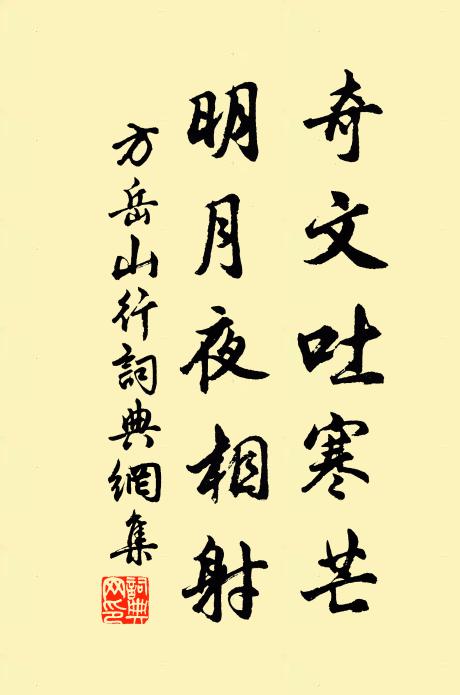 奇文吐寒芒
明月夜相射
方岳山行詞典網集
詞典網印